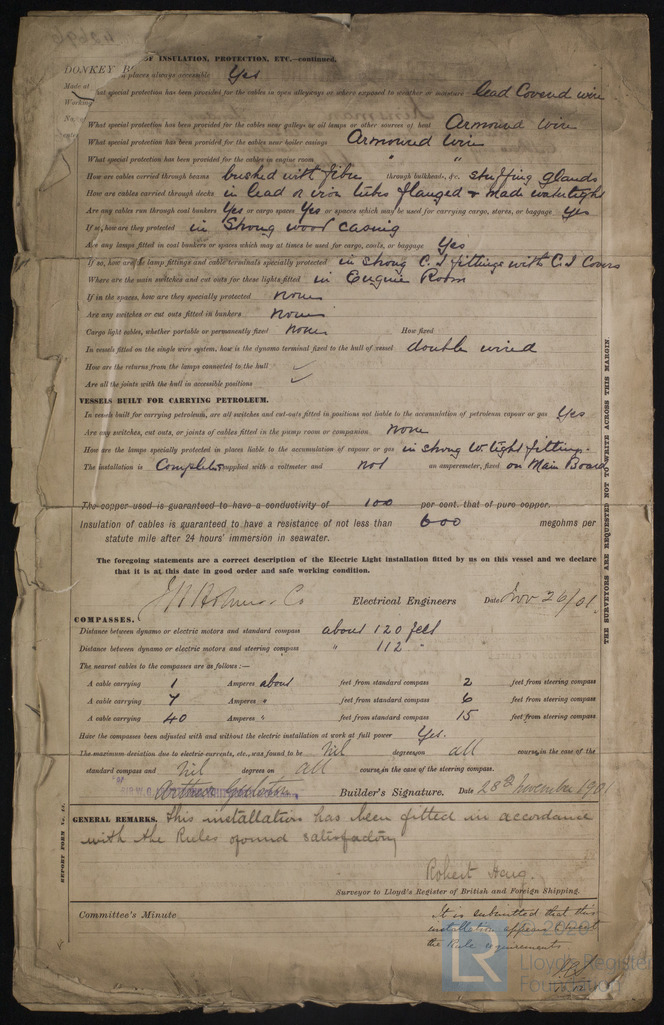 OF INSULATION, PROTECTION, ETC.—continued.
DONKEY
places always accessible Yes
Made at
special protection has been provided for the cables in open alleyways or where exposed to weather or moisture Lead Covered wire
Working
What special protection has been provided for the cables near galleys or oil lamps or other sources of heat Armoured wire
What special protection has been provided for the cables near boiler casings Armoured wire
What special protection has been provided for the cables in engine room " "
How are cables carried through beams bushed with fibre through bulkheads, &c. stuffing glands
How are cables carried through decks in lead or iron tubes flanged & made watertight
Are any cables run through coal bunkers Yes or cargo spaces Yes or spaces which may be used for carrying cargo, stores, or baggage Yes
If so, how are they protected in Strong wood casing
Are any lamps fitted in coal bunkers or spaces which may at times be used for cargo, coals, or baggage Yes
If so, how are lamp fittings and cable terminals specially protected in strong C.I fittings with C.I Covers
Where are the main switches and cut outs for these lights fitted in Engine Room
If in the spaces, how are they specially protected none
Are any switches or cut outs fitted in bunkers none
Cargo light cables, whether portable or permanently fixed none How fixed
In vessels fitted on the single wire system, how is the dynamo terminal fixed to the hull of vessel double wired
How are the returns from the lamps connected to the hull
Are all the joints with the hull in accessible positions
VESSELS BUILT FOR CARRYING PETROLEUM.
In vessels built for carrying petroleum, are all switches and cut-outs fitted in positions not liable to the accumulation of petroleum vapour or gas Yes
Are any switches, cut outs, or joints of cables fitted in the pump room or companion none
How are the lamps specially protected in places liable to the accumulation of vapour or gas in strong w.tight fittings.
The installation is Complete supplied with a voltmeter and not an amperemeter, fixed on Main Board
The copper used is guaranteed to have a conductivity of 100 per cent. that of pure copper.
Insulation of cables is guaranteed to have a resistance of not less than 600 megohms per
statute mile after 24 hours' immersion in seawater.
The foregoing statements are a correct description of the Electric Light installation fitted by us on this vessel and we declare
that it is at this date in good order and safe working condition.
J H Holmes & Co Electrical Engineers Date Nov 26/01.
COMPASSES.
Distance between dynamo or electric motors and standard compass about 120 feet
Distance between dynamo or electric motors and steering compass " 112 "
The nearest cables to the compasses are as follows:—
A cable carrying 1 Amperes about feet from standard compass 2 feet from steering compass
A cable carrying 7 Amperes " feet from standard compass 6 feet from steering compass
A cable carrying 40 Amperes " feet from standard compass 15 feet from steering compass
Have the compasses been adjusted with and without the electric installation at work at full power Yes.
The maximum deviation due to electric currents, etc., was found to be Nil degrees on all course in the case of the
standard compass and Nil degrees on all course in the case of the steering compass.
Builder's Signature. Date 28th November 1901
GENERAL REMARKS. This installation has been fitted in accordance
with the Rules & found satisfactory
Robert Haig.
Surveyor to Lloyd's Register of British and Foreign Shipping.
Committee's Minute
It is submitted that this
installation appears to meet
the Rule requirements
THE SURVEYORS ARE REQUESTED NOT TO WRITE ACROSS THIS MARGIN.
REPORT FORM No. 13.
LR
© 2020
Lloyd's Register
Foundation